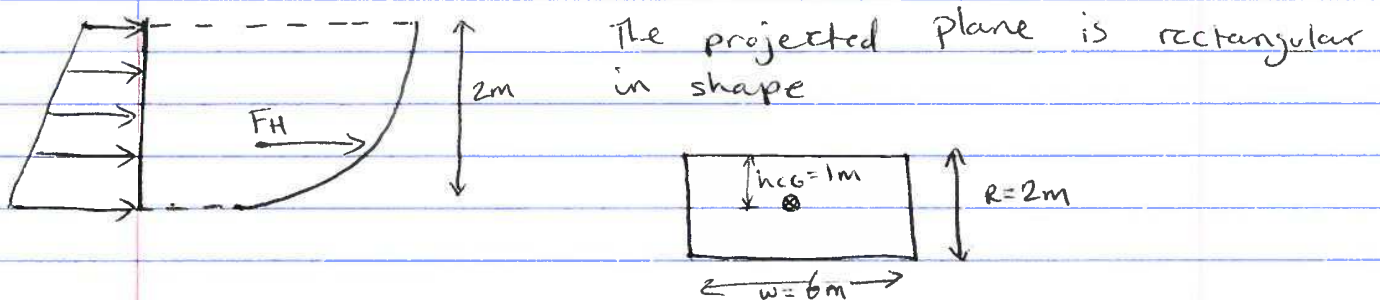 The projected plane is rectangular
in shape
2m
FH
hCG=1m
R=2m
w=6m